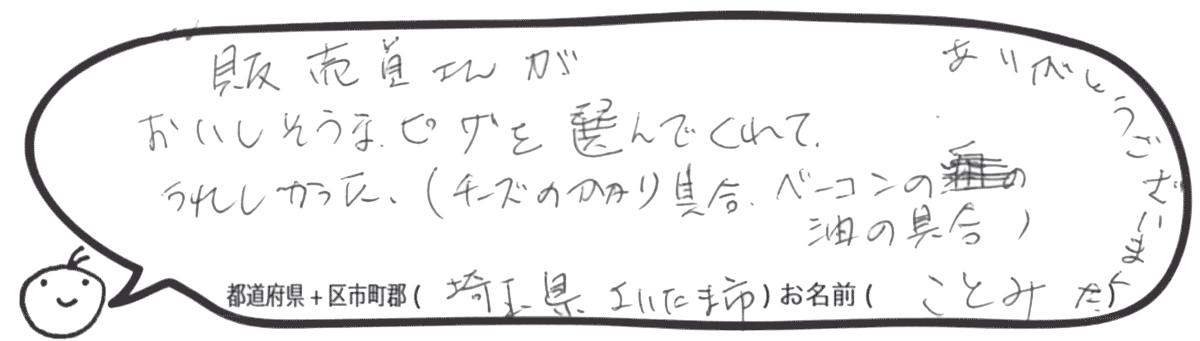 販売員さんが
おいしそうな、ピザを選んでくれて、
うれしかった、(チーズのかかり具合、ベーコンの
油の具合)
都道府県+区市町郡(埼玉県 さいたま市)お名前(ことみ
ありがとうございました